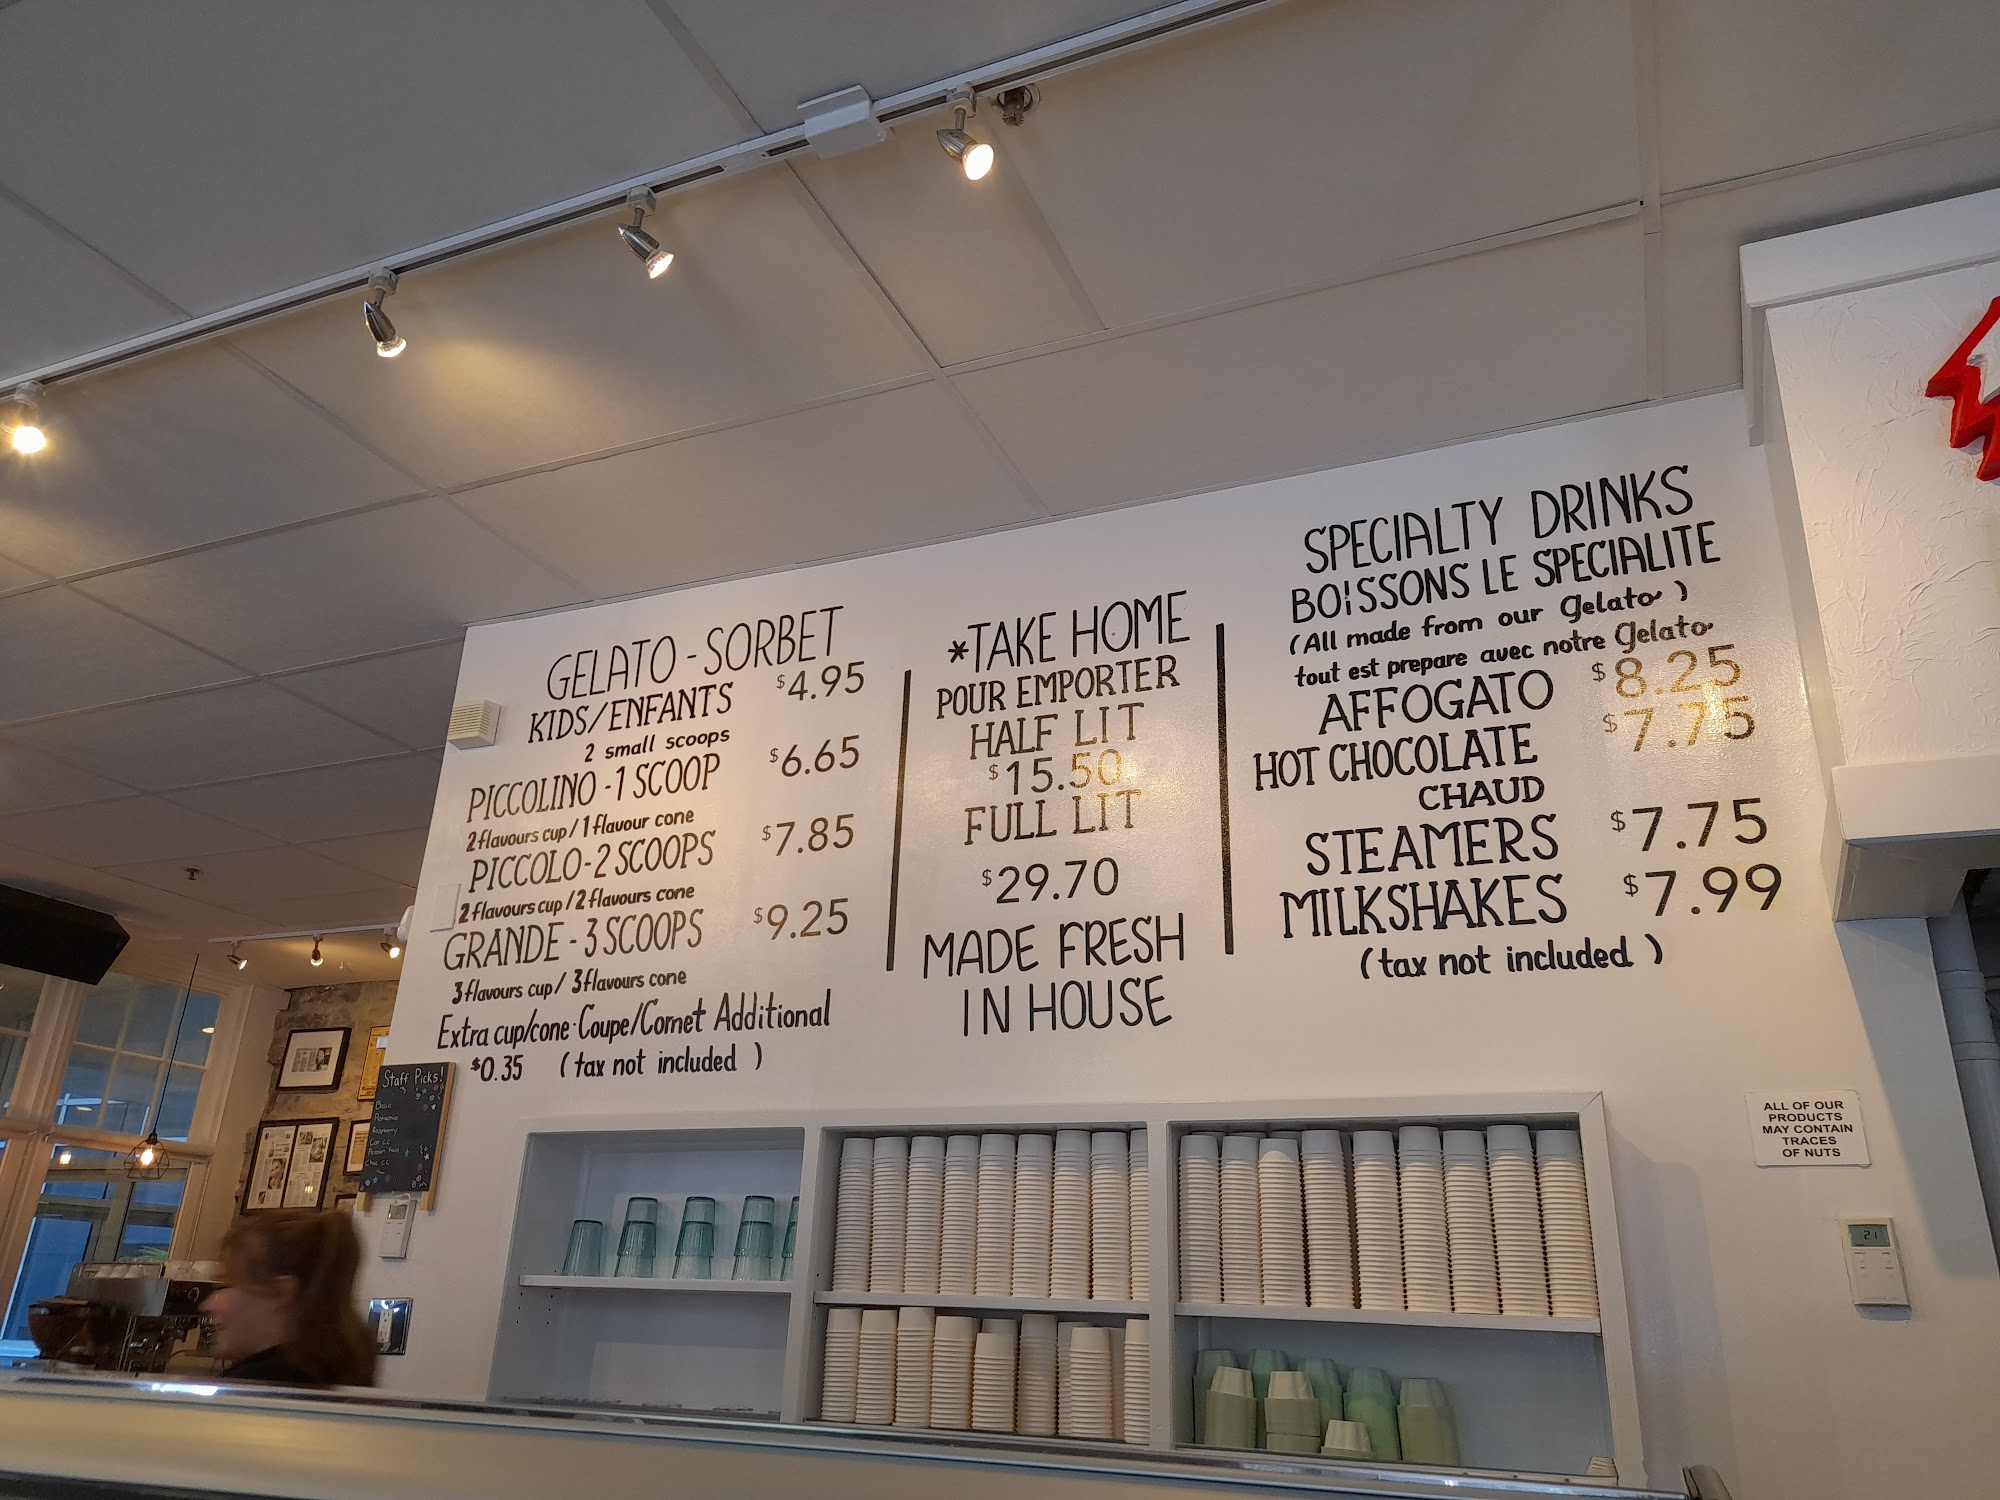 GELATO - SORBET
KIDS/ENFANTS $4.95
2 small scoops
PICCOLINO - 1 SCOOP $6.65
2 flavours cup / 1 flavour cone
PICCOLO - 2 SCOOPS $7.85
2 flavours cup / 2 flavours cone
GRANDE - 3 SCOOPS $9.25
3 flavours cup / 3 flavours cone
Extra cup/cone · Coupe/Cornet Additional
$0.35 (tax not included)
*TAKE HOME
POUR EMPORTER
HALF LIT
$15.50
FULL LIT
$29.70
MADE FRESH
IN HOUSE
SPECIALTY DRINKS
BOiSSONS LE SPECIALITE
(All made from our Gelato)
tout est prepare avec notre Gelato
AFFOGATO $8.25
HOT CHOCOLATE $7.75
CHAUD
STEAMERS $7.75
MILKSHAKES $7.99
(tax not included)
Staff Picks!
Pistachio
Raspberry
Passion Fruit
ALL OF OUR
PRODUCTS
MAY CONTAIN
TRACES
OF NUTS
21